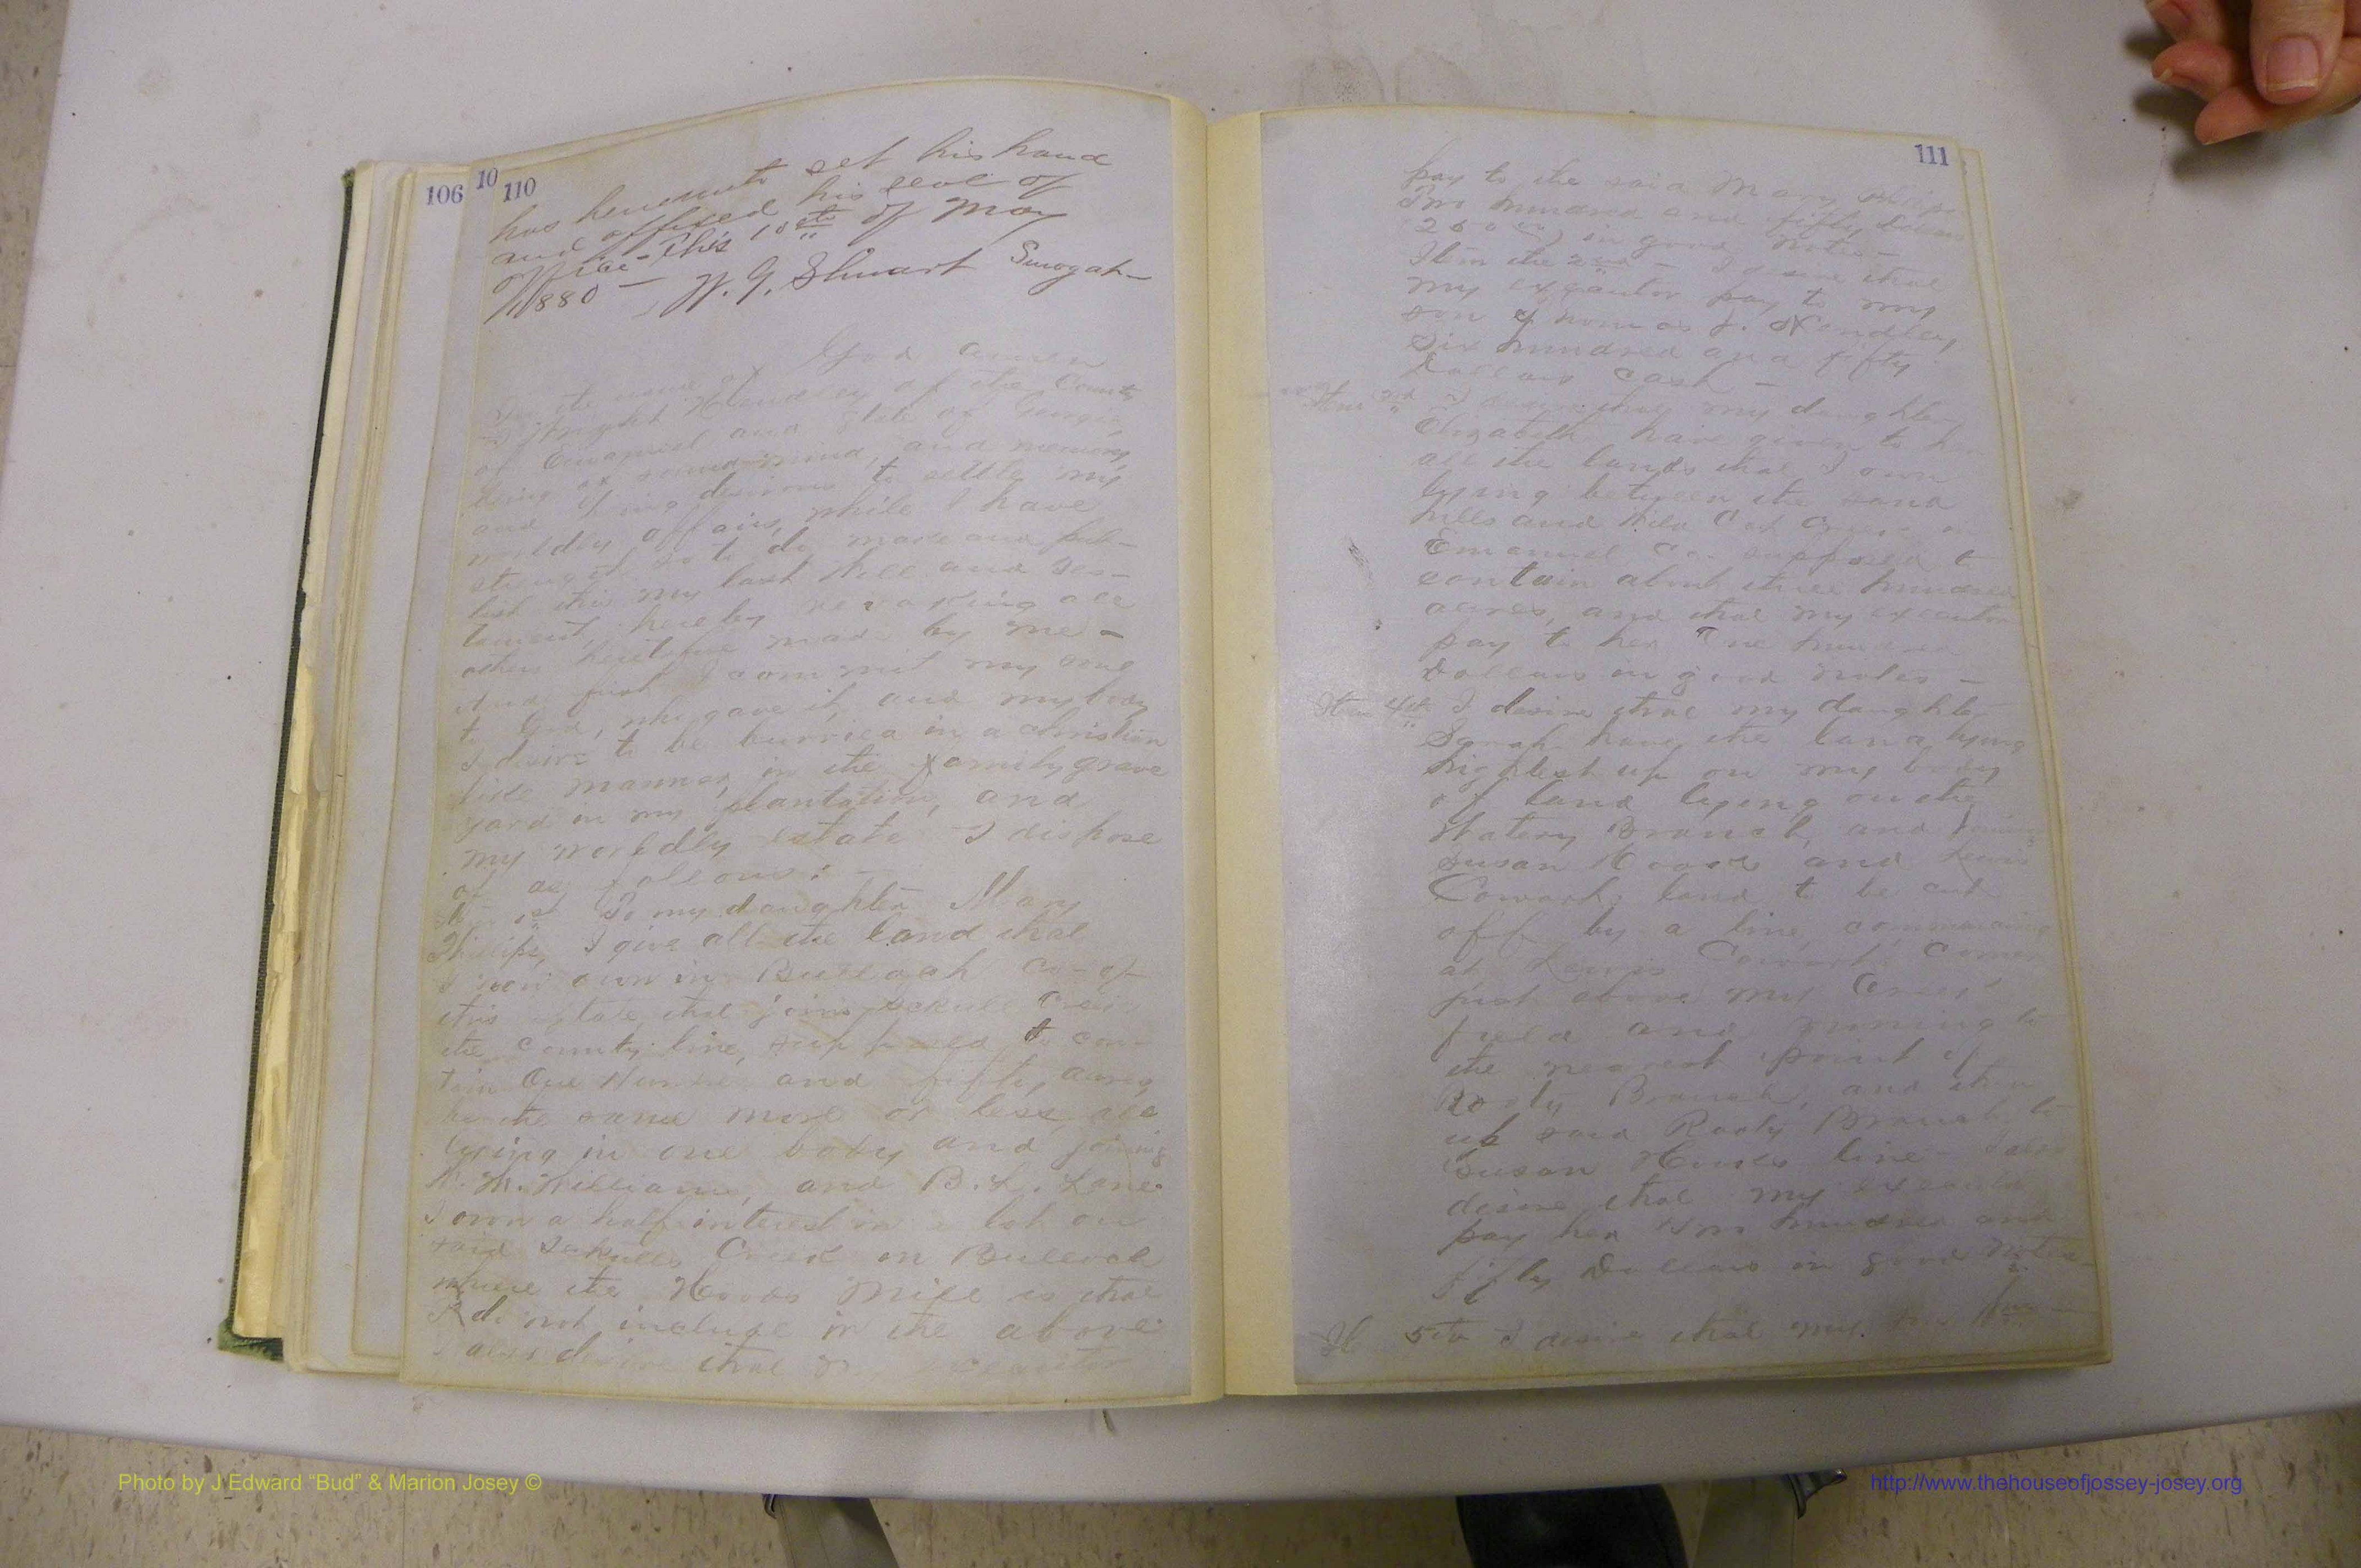 106
10
110
has hereunto set his hand
and affixed his seal of
office - This 10th of May
1880 - W. G. Stuart
God amen
In the name of
I Wright Hendley of the County
of Emanuel and State of Georgia
being of sound mind, and memory
and being desirous to settle my
worldly affairs, while I have
strength so to do, make and pub-
lish this my last Will and Tes-
tament, hereby revoking all
others heretofore made by me -
And first I commit my soul
to God, who gave it, and my body
I desire to be burried in a christian
like manner, in the family grave
yard in my plantation, and
my worldly estate I dispose
of as follows: -
Item 1st To my daughter Mary
Phillips, I give all the land that
I own in Bulloch Co. of
this state, that joins
the County line, supposed to con-
tain One Hundred and fifty acres,
be the same more or less, all
lying in one body and joining
M. Williams, and B. L. Lane.
I own a half interest in a lot on
said Creek in Bulloch
where the Hooks Mill is that
I do not include in the above
I also desire that my executor
111
pay to the said Mary Phillips
Two hundred and fifty Dollars
(250 00) in good notes -
Item the 2nd - I desire that
my executor pay to my
son Thomas J. Hendley,
Six hundred and fifty
Dollars Cash -
Item 3rd I desire that my daughter
Elizabeth have given to her
all the lands that I own
lying between the sand
hills and Wild Cat Creek in
Emanuel Co. supposed to
contain about three hundred
acres, and that my executor
pay to her One hundred
Dollars in good notes -
Item 4th I desire that my daughter
Sarah have the land lying
highest up on my body
of land lying on the
Watery Branch, and joining
Susan Hooks and Lewis
Cowart, land to be cut
off by a line, commencing
at Lewis Cowart's Corner
just above my
field and running to
the nearest point of
Rooty Branch, and then
up said Rooty Branch to
Susan Hooks line - I also
desire that my executor
pay her Two hundred and
fifty Dollars in good notes -
5th I desire that my
Photo by J Edward "Bud" & Marion Josey ©
http://www.thehouseofjossey-josey.org